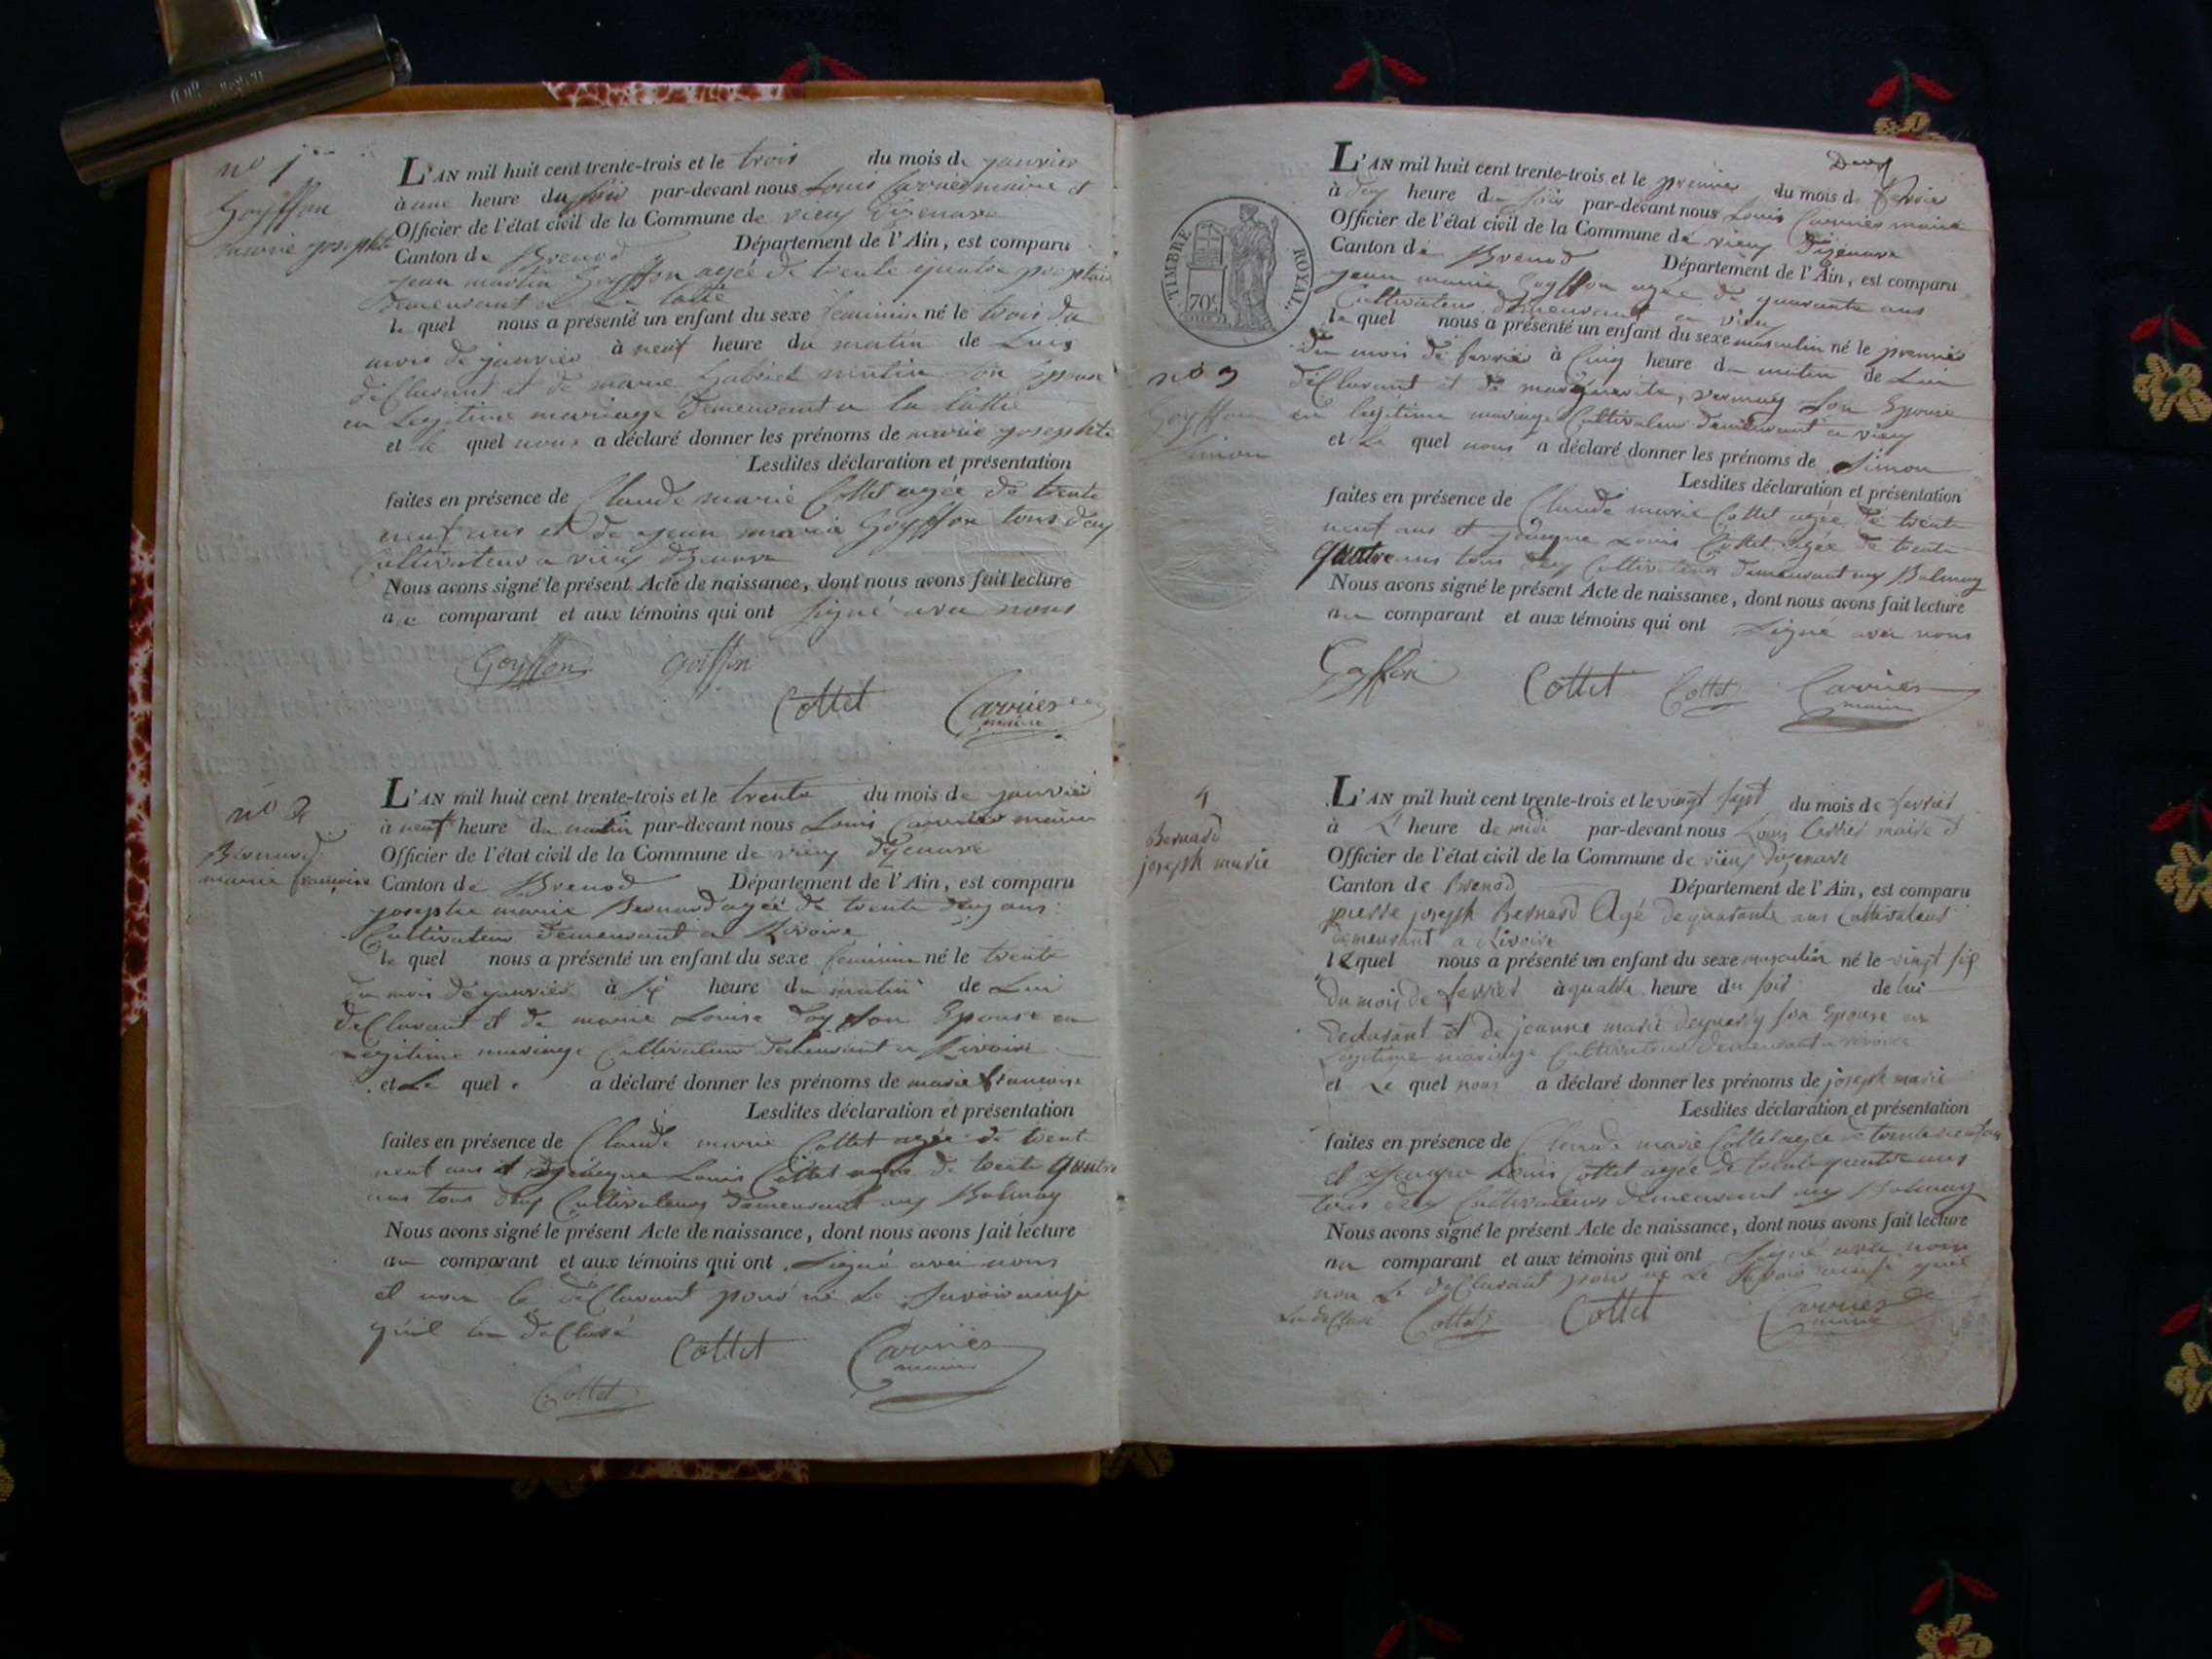 no 1er
Goyffon
marie josephte
L'AN mil huit cent trente-trois et le trois du mois de janvier
à une heure du soir par-devant nous Louis Carrier maire et
Officier de l'état civil de la Commune de vieu dizenave
Canton de Brenod Département de l'Ain, est comparu
jean martin Goyffon agée de trente quatre
demeurant a La
le quel nous a présenté un enfant du sexe feminin né le trois du
mois de janvier à neuf heure du matin de Lui
déClarant et de marie Gabriel son Epouse
en Legitime mariage demeurant a la
et le quel nous a déclaré donner les prénoms de marie josephte
Lesdites déclaration et présentation
faites en présence de Claude marie Cottet agée de trente
neuf ans et de jean marie Goyffon tous deux
Cultivateur a vieux dizenave
Nous avons signé le présent Acte de naissance, dont nous avons fait lecture
au comparant et aux témoins qui ont signé avec nous
Goyffon Goiffon
Cottet Carrier
maire
no 2
Bernard
marie françoise
L'AN mil huit cent trente-trois et le trente du mois de janvier
à neuf heure du matin par-devant nous Louis Carrier maire
Officier de l'état civil de la Commune de vieux dizenave
Canton de Brenod Département de l'Ain, est comparu
josephe marie Bernard agée de trente deux ans
Cultivateur demeurant a Rivoire
le quel nous a présenté un enfant du sexe feminin né le trente
du mois de janvier à six heure du matin de Lui
déClarant et de marie Louise Goyffon Epouse en
Legitime mariage Cultivateur demeurant a Rivoire
et Le quel a déclaré donner les prénoms de marie françoise
Lesdites déclaration et présentation
faites en présence de Claude marie Cottet agée de trent
neuf ans et Louis Cottet agée de trente quatre
ans tous deux Cultivateurs demeurant aux Balmay
Nous avons signé le présent Acte de naissance, dont nous avons fait lecture
au comparant et aux témoins qui ont signé avec nous
et non le déClarant pour ne le savoir ainsi
qu'il La déClaré
Cottet Carrier
maire
Cottet
Deux
TIMBRE ROYAL
70c
L'AN mil huit cent trente-trois et le premier du mois de fevrier
à dix heure du soir par-devant nous Louis Carrier maire
Officier de l'état civil de la Commune de vieux dizenave
Canton de Brenod Département de l'Ain, est comparu
jean marie Goyffon agée de quarante ans
Cultivateur demeurant a vieux
le quel nous a présenté un enfant du sexe masculin né le premier
du mois de fevrier à Cinq heure du matin de Lui
no 3
Goyffon
Simon
déClarant et de marguerite, son Epouse
en legitime mariage Cultivateur demeurant a vieux
et Le quel nous a déclaré donner les prénoms de Simon
Lesdites déclaration et présentation
faites en présence de Claude marie Cottet agée de trente
neuf ans et Louis Cottet agée de trente
quatre ans tous deux Cultivateurs demeurant aux Balmay
Nous avons signé le présent Acte de naissance, dont nous avons fait lecture
au comparant et aux témoins qui ont signé avec nous
Goyffon Cottet Cottet Carrier
maire
4
Bernard
joseph marie
L'AN mil huit cent trente-trois et le vingt sept du mois de fevrier
à L' heure de midi par-devant nous Louis Carrier maire et
Officier de l'état civil de la Commune de vieux dizenave
Canton de Brenod Département de l'Ain, est comparu
pierre joseph Bernard Agé de quarante ans cultivateur
demeurant a Rivoire
lequel nous a présenté un enfant du sexe masculin né le vingt six
du mois de fevrier à quatre heure du soir de lui
declarant et de jeanne marie son Epouse en
Legitime mariage Cultivateur demeurant a rivoire
et Le quel nous a déclaré donner les prénoms de joseph marie
Lesdites déclaration et présentation
faites en présence de Claude marie Cottet agée de trente neuf ans
et Louis Cottet agée de trente quatre ans
tous deux Cultivateurs demeurant aux Balmay
Nous avons signé le présent Acte de naissance, dont nous avons fait lecture
au comparant et aux témoins qui ont signé avec nous
non Le déClarant pour ne Le savoir ainsi quil
La déClaré Cottet Cottet Carrier
maire